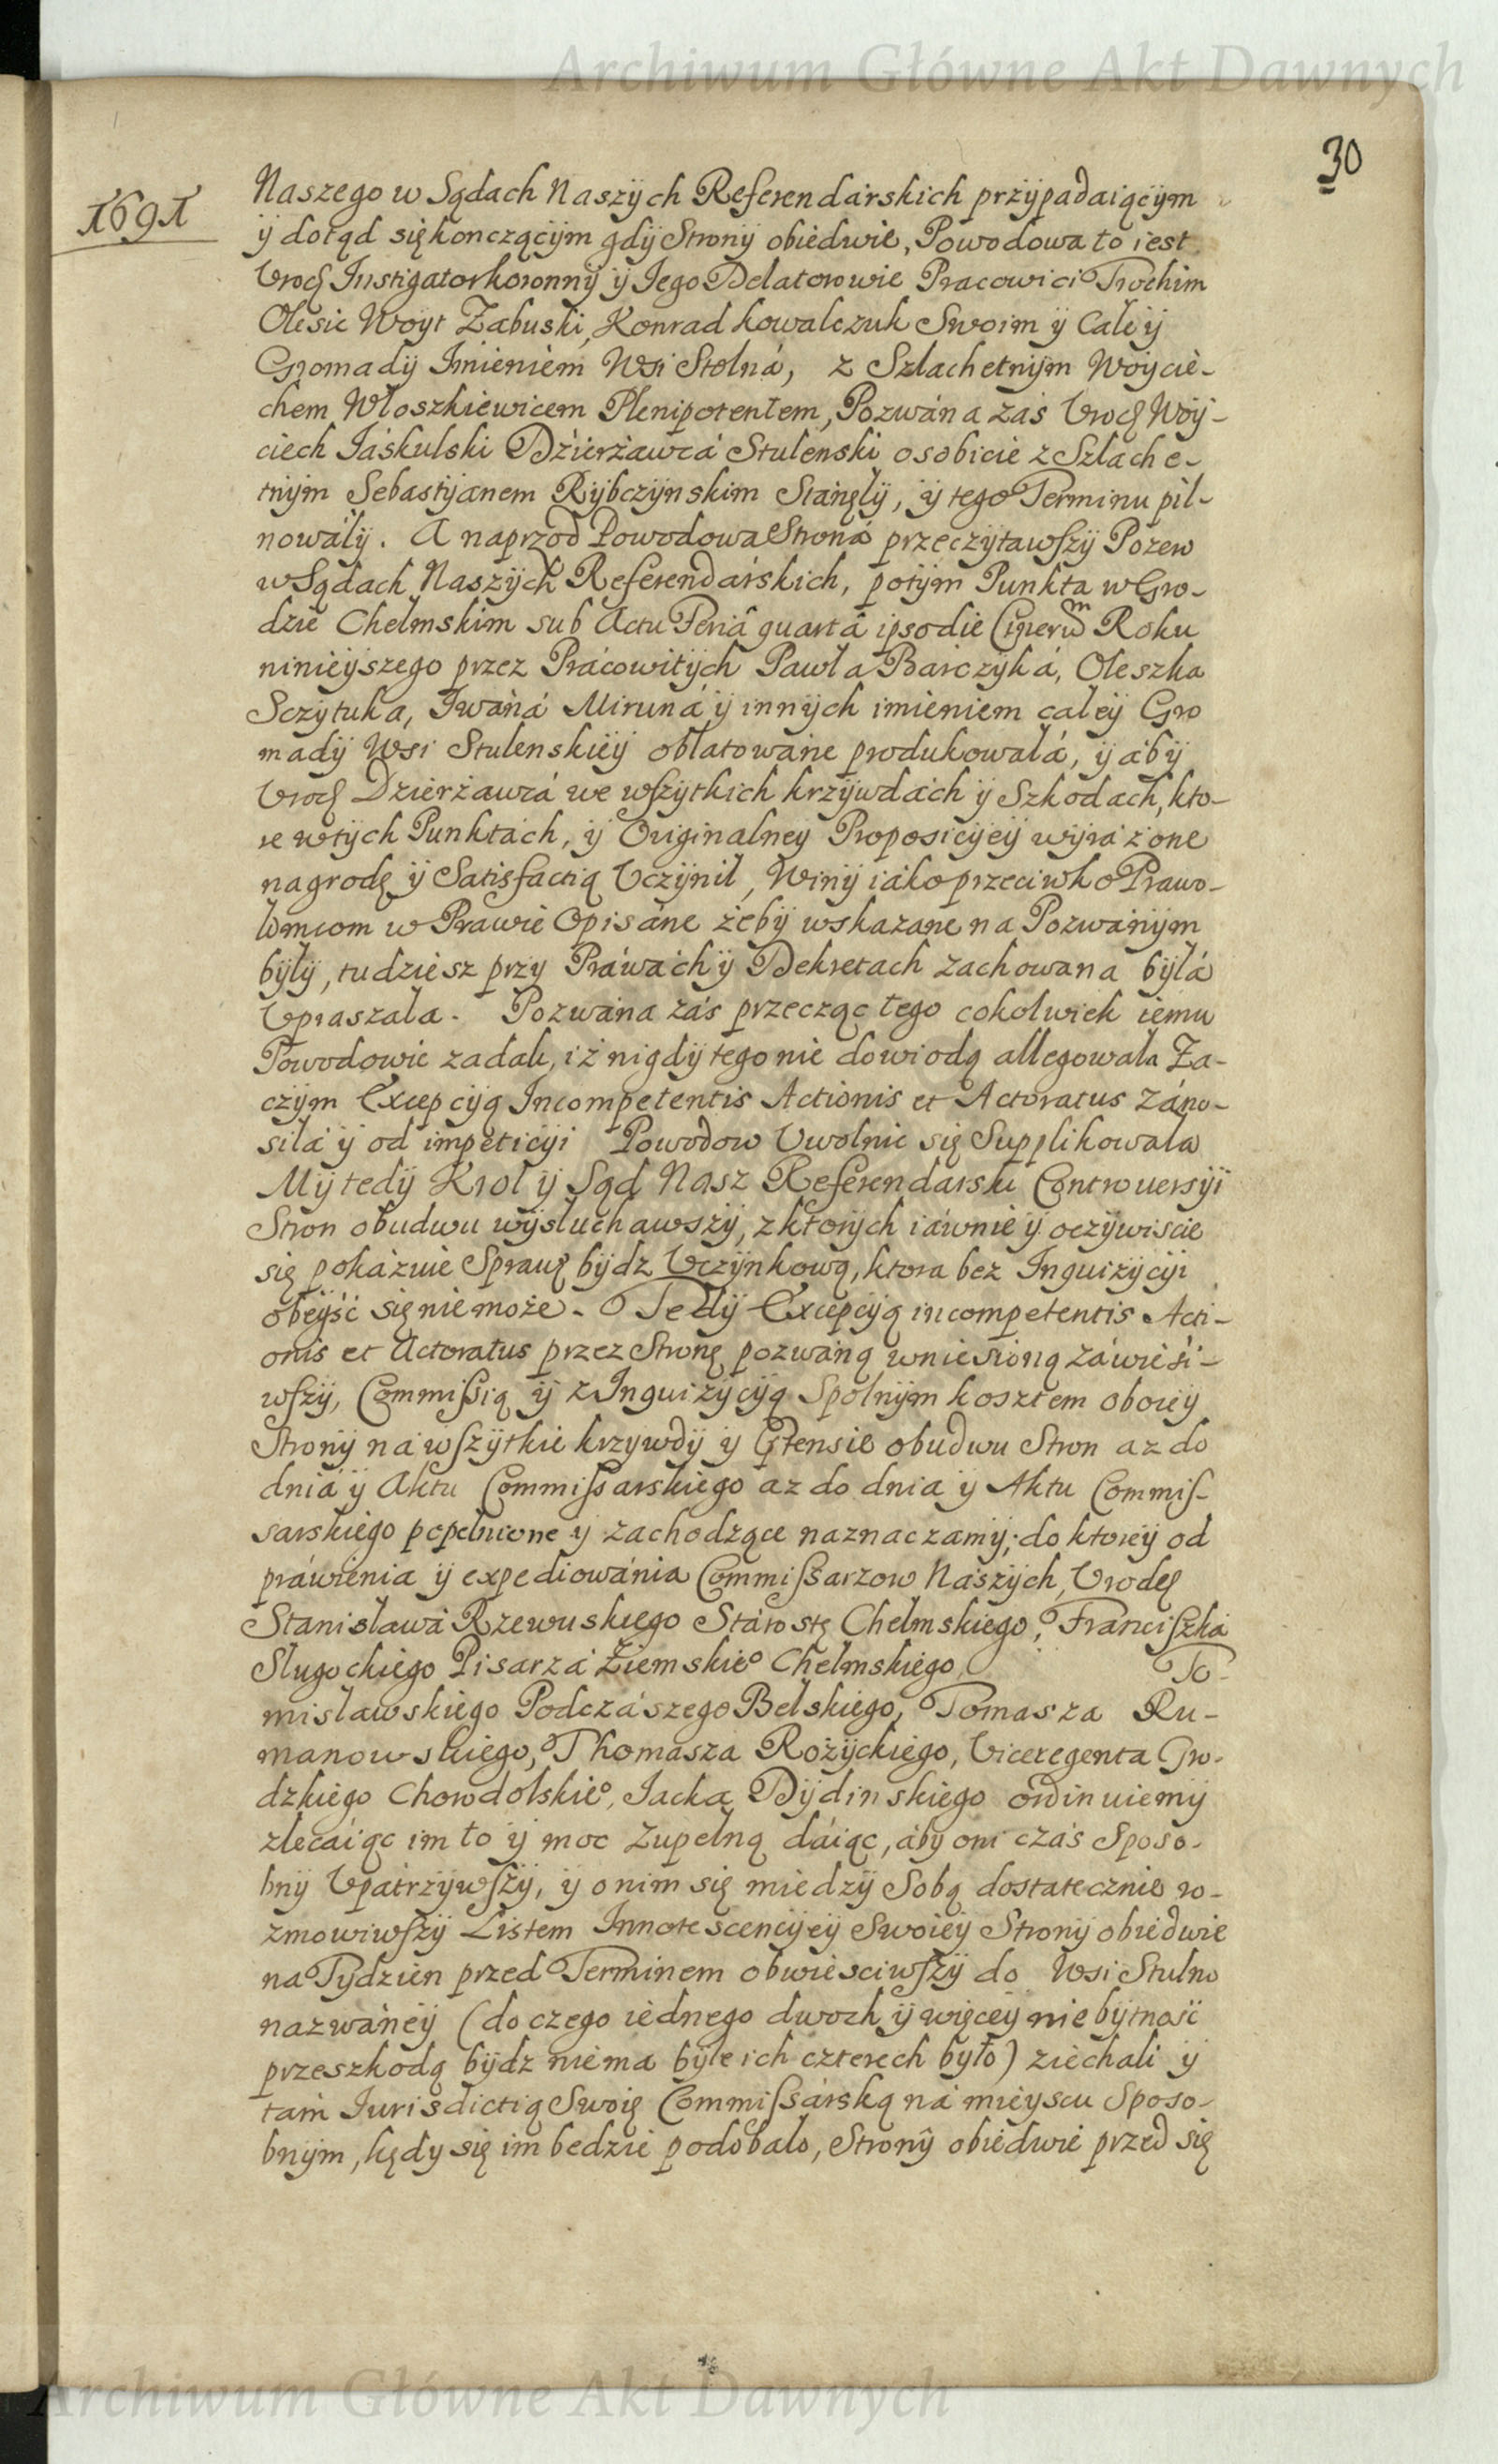 Archiwum Główne Akt Dawnych
30
1691
Naszego w Sądach Naszych Referendarskich przypadaiącym
y dotąd się konczącym gdy Strony obiedwie, Powodowa to iest
Urodz Instigator koronny y Jego Delatorowie Pracowici Trochim
Olesic Woyt Zabuski, Konrad Kowalczuk Swoim y Całey
Gromady Imieniem Wsi Stolná, z Szlachetnym Woycie-
chem Włoszkiewicem Plenipotentem, Pozwána zas Urodz Woy-
ciech Jáskulski Dzierżawcá Stulenski osobicie z Szlache-
tnym Sebastyanem Rybczynskim Stanęły, y tego Terminu pil-
nowáły. A naprzod Powodowa Stroná przeczytawszy Pozew
w Sądach Naszych Referendarskich, potym Punkta w Gro-
dzie Chelmskim sub Actu Feriâ quartâ ipso die Cinerum Roku
ninieyszego przez Prácowitych Pawła Barczyká, Oleszka
Sczytuka, Iwáná Miruná y innych imieniem całey Gro
mady Wsi Stulenskiey oblatowane produkowałá, y áby
Urodz Dzierżawcá we wszytkich krzywdách y Szkodach, kto-
re w tych Punktách, y Originalney Proposicyey wyrażone
nagrodę y Satisfactią Uczynił, Winy iáko przeciwko Prawo-
lomcom w Prawie Opisáne żeby wskazane na Pozwánym
były, tudziesz przy Práwách y Dekretach zachowana byłá
Upraszała. Pozwána zás przecząc tego cokolwiek iemu
Powodowie zadali, iż nigdy tego nie dowiodą allegowała Za-
czym Excepcyą Incompetentis Actionis et Actoratus záno-
siłá y od impeticyi Powodow Uwolnic się Supplikowała
My tedy Krol y Sąd Nasz Referendarski Controuersyi
Stron obudwu wysłuchawszy, z ktorych iáwnie y oczywiscie
się pokázuie Sprawę bydz Uczynkową, ktora bez Inquizycyi
obeyść się nie może. Tedy Excepcyą incompetentis Acti-
onis et Actoratus przez Stronę pozwáną wniesioną záwiesi-
wszy, Commissią y z Inquizycyą Społnym kosztem oboiey
Strony ná wszytkie krzywdy y Prtensie obudwu Stron az do
dniá y Aktu Commissarskiego az do dnia y Aktu Commis-
sarskiego popełnione y zachodzące naznaczamy; do ktorey od
práwienia y expediowánia Commissarzow Nászych, Urodzch
Stanisławá Rzewuskiego Stárostę Chelmskiego, Franciszká
Sługockiego Pisarzá Ziemskieo Chelmskiego, To-
misławskiego Podczászego Belskiego, Tomasza Ru-
manowskiego, Thomasza Rożyckiego, Viceregenta Gro-
dzkiego Chorodolskieo, Jacka Dydinskiego ordinuiemy
zlecáiąc im to y moc Zupełną dáiąc, áby oni czás Sposo-
bny Upátrzywszy, y o nim się miedzy Sobą dostatecznie ro-
zmowiwszy Listem Innotescencyey Swoiey Strony obiedwie
na Tydzien przed Terminem obwiesciwszy do Wsi Stulno
nazwáney (do czego iednego dwoch y więcey nie bytność
przeszkodą bydz niema byle ich czterech było) ziechali y
tám Iurisdictią Swoię Commissárską ná mieyscu Sposo-
bnym, kędy się im bedzie podobało, Strony obiedwie przed się
Archiwum Główne Akt Dawnych